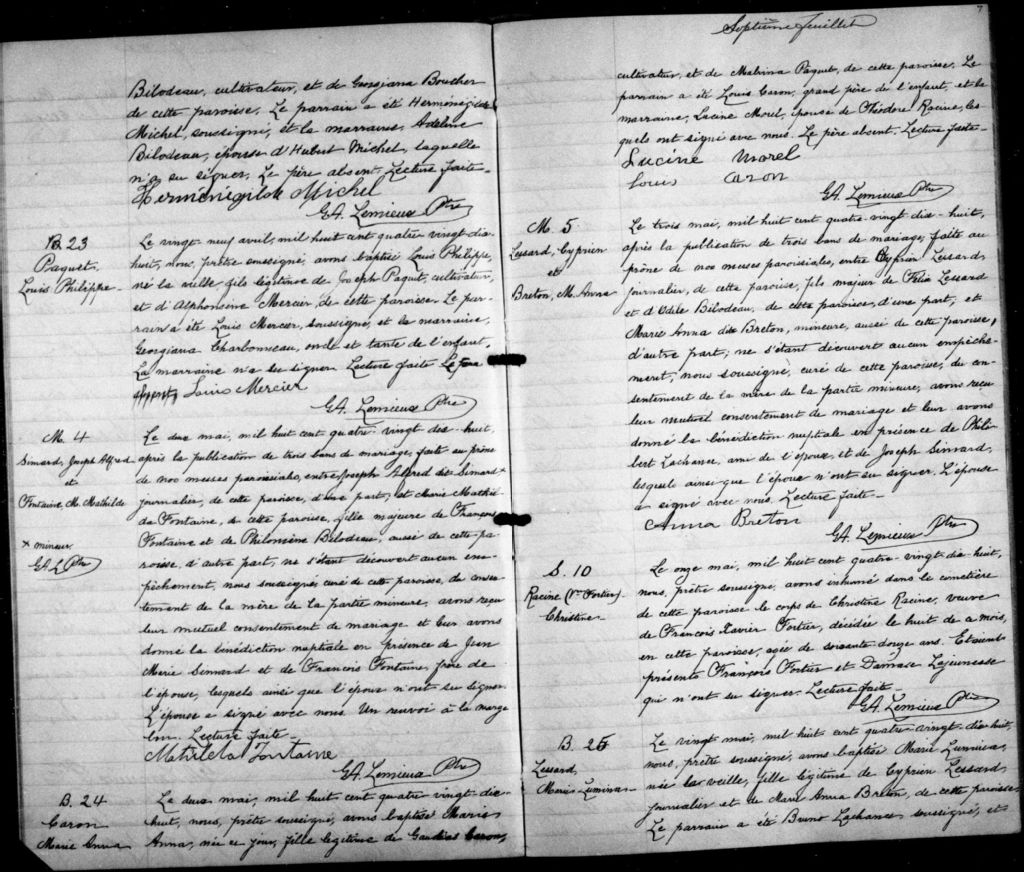 Bilodeau, cultivateur, et de Georgiana Boucher
de cette paroisse. Le parrain a été Herménégilde
Michel, soussigné, et la marraine, Adeline
Bilodeau, épouse d'Hubert Michel, laquelle
n'a su signer. Le père absent. Lecture faite-
Herménégilde Michel
G.A. Lemieux Ptre
B. 23
Paquet,
Louis Philippe-
Le vingt-neuf avril, mil huit cent quatre vingt-dix-
huit, nous, prêtre soussigné, avons baptisé Louis Philippe,
né la veille, fils légitime de Joseph Paquet, cultivateur,
et d'Alphonsine Mercier, de cette paroisse. Le par-
rain a été Louis Mercier, soussigné, et la marraine,
Georgiana Charbonneau, oncle et tante de l'enfant.
La marraine n'a su signer. Lecture faite Le père
Louis Mercier
G.A. Lemieux Ptre
M. 4
Simard, Joseph Alfred
et
Fontaine, M. Mathilde
x mineur
G.A.L Ptre
Le deux mai, mil huit cent quatre vingt dix-huit,
après la publication de trois bans de mariage, faite au prône
de nos messes paroissiales, entre Joseph Alfred dit Simard x
journalier, de cette paroisse, d'une part; et Marie Mathil-
de Fontaine, de cette paroisse, fille majeure de François
Fontaine et de Philomène Bilodeau, aussi de cette pa-
roisse, d'autre part, ne s'étant découvert aucun em-
pêchement, nous soussigné, curé de cette paroisse, du consen-
tement de la mère de la partie mineure, avons reçu
leur mutuel consentement de mariage et leur avons
donné la bénédiction nuptiale en présence de Jean
Marie Simard et de François Fontaine, frère de
l'épouse, lesquels ainsi que l'époux n'ont su signer.
L'épouse a signé avec nous. Un renvoi à la marge
bon. Lecture faite-
Mathilda Fontaine
G.A. Lemieux Ptre
B. 24
Caron
Marie Anna
Le deux mai, mil huit cent quatre vingt-dix-
huit, nous, prêtre soussigné, avons baptisé Marie
Anna, née ce jour, fille légitime de Caron,
7
Septième feuillet
cultivateur, et de Malvina Paquet, de cette paroisse. Le
parrain a été Louis Caron, grand père de l'enfant, et la
marraine, Lucine Morel, épouse de Théodore Racine, les-
quels ont signé avec nous. Le père absent. Lecture faite-
Lucine Morel
Louis Caron
G.A. Lemieux Ptre
M. 5
Lessard, Cyprien
et
Breton, M. Anna
Le trois mai, mil huit cent quatre-vingt dix-huit,
après la publication de trois bans de mariage, faite au
prône de nos messes paroissiales, entre Cyprien Lessard,
journalier, de cette paroisse, fils majeur de Félix Lessard
et d'Odile Bilodeau, de cette paroisse, d'une part; et
Marie Anna dite Breton, mineure, aussi de cette paroisse,
d'autre part; ne s'étant découvert aucun empêche-
ment, nous soussigné, curé de cette paroisse, du con-
sentement de la mère de la partie mineure, avons reçu
leur mutuel consentement de mariage et leur avons
donné la bénédiction nuptiale en présence de Phili-
bert Lachance, ami de l'époux, et de Joseph Simard,
lesquels ainsi que l'époux n'ont su signer. L'épouse
a signé avec nous. Lecture faite-
Anna Breton
G.A. Lemieux Ptre
S. 10
Racine (Ve Fortier)-
Christine-
Le onze mai, mil huit cent quatre-vingt-dix-huit,
nous, prêtre soussigné, avons inhumé dans le cimetière
de cette paroisse le corps de Christine Racine, veuve
de François Xavier Fortier, décédée le huit de ce mois,
en cette paroisse, agée de soixante-douze ans. Etaient
présents François Fortier et Damase Lajeunesse
qui n'ont su signer. Lecture faite-
G.A. Lemieux Ptre
B. 25
Lessard,
Marie-Lumina-
Le vingt mai, mil huit cent quatre-vingt dix-huit,
nous, prêtre soussigné, avons baptisé Marie Lumina,
née la veille, fille légitime de Cyprien Lessard,
journalier et de Marie Anna Breton, de cette paroisse.
Le parrain a été Bruno Lachance soussigné, et